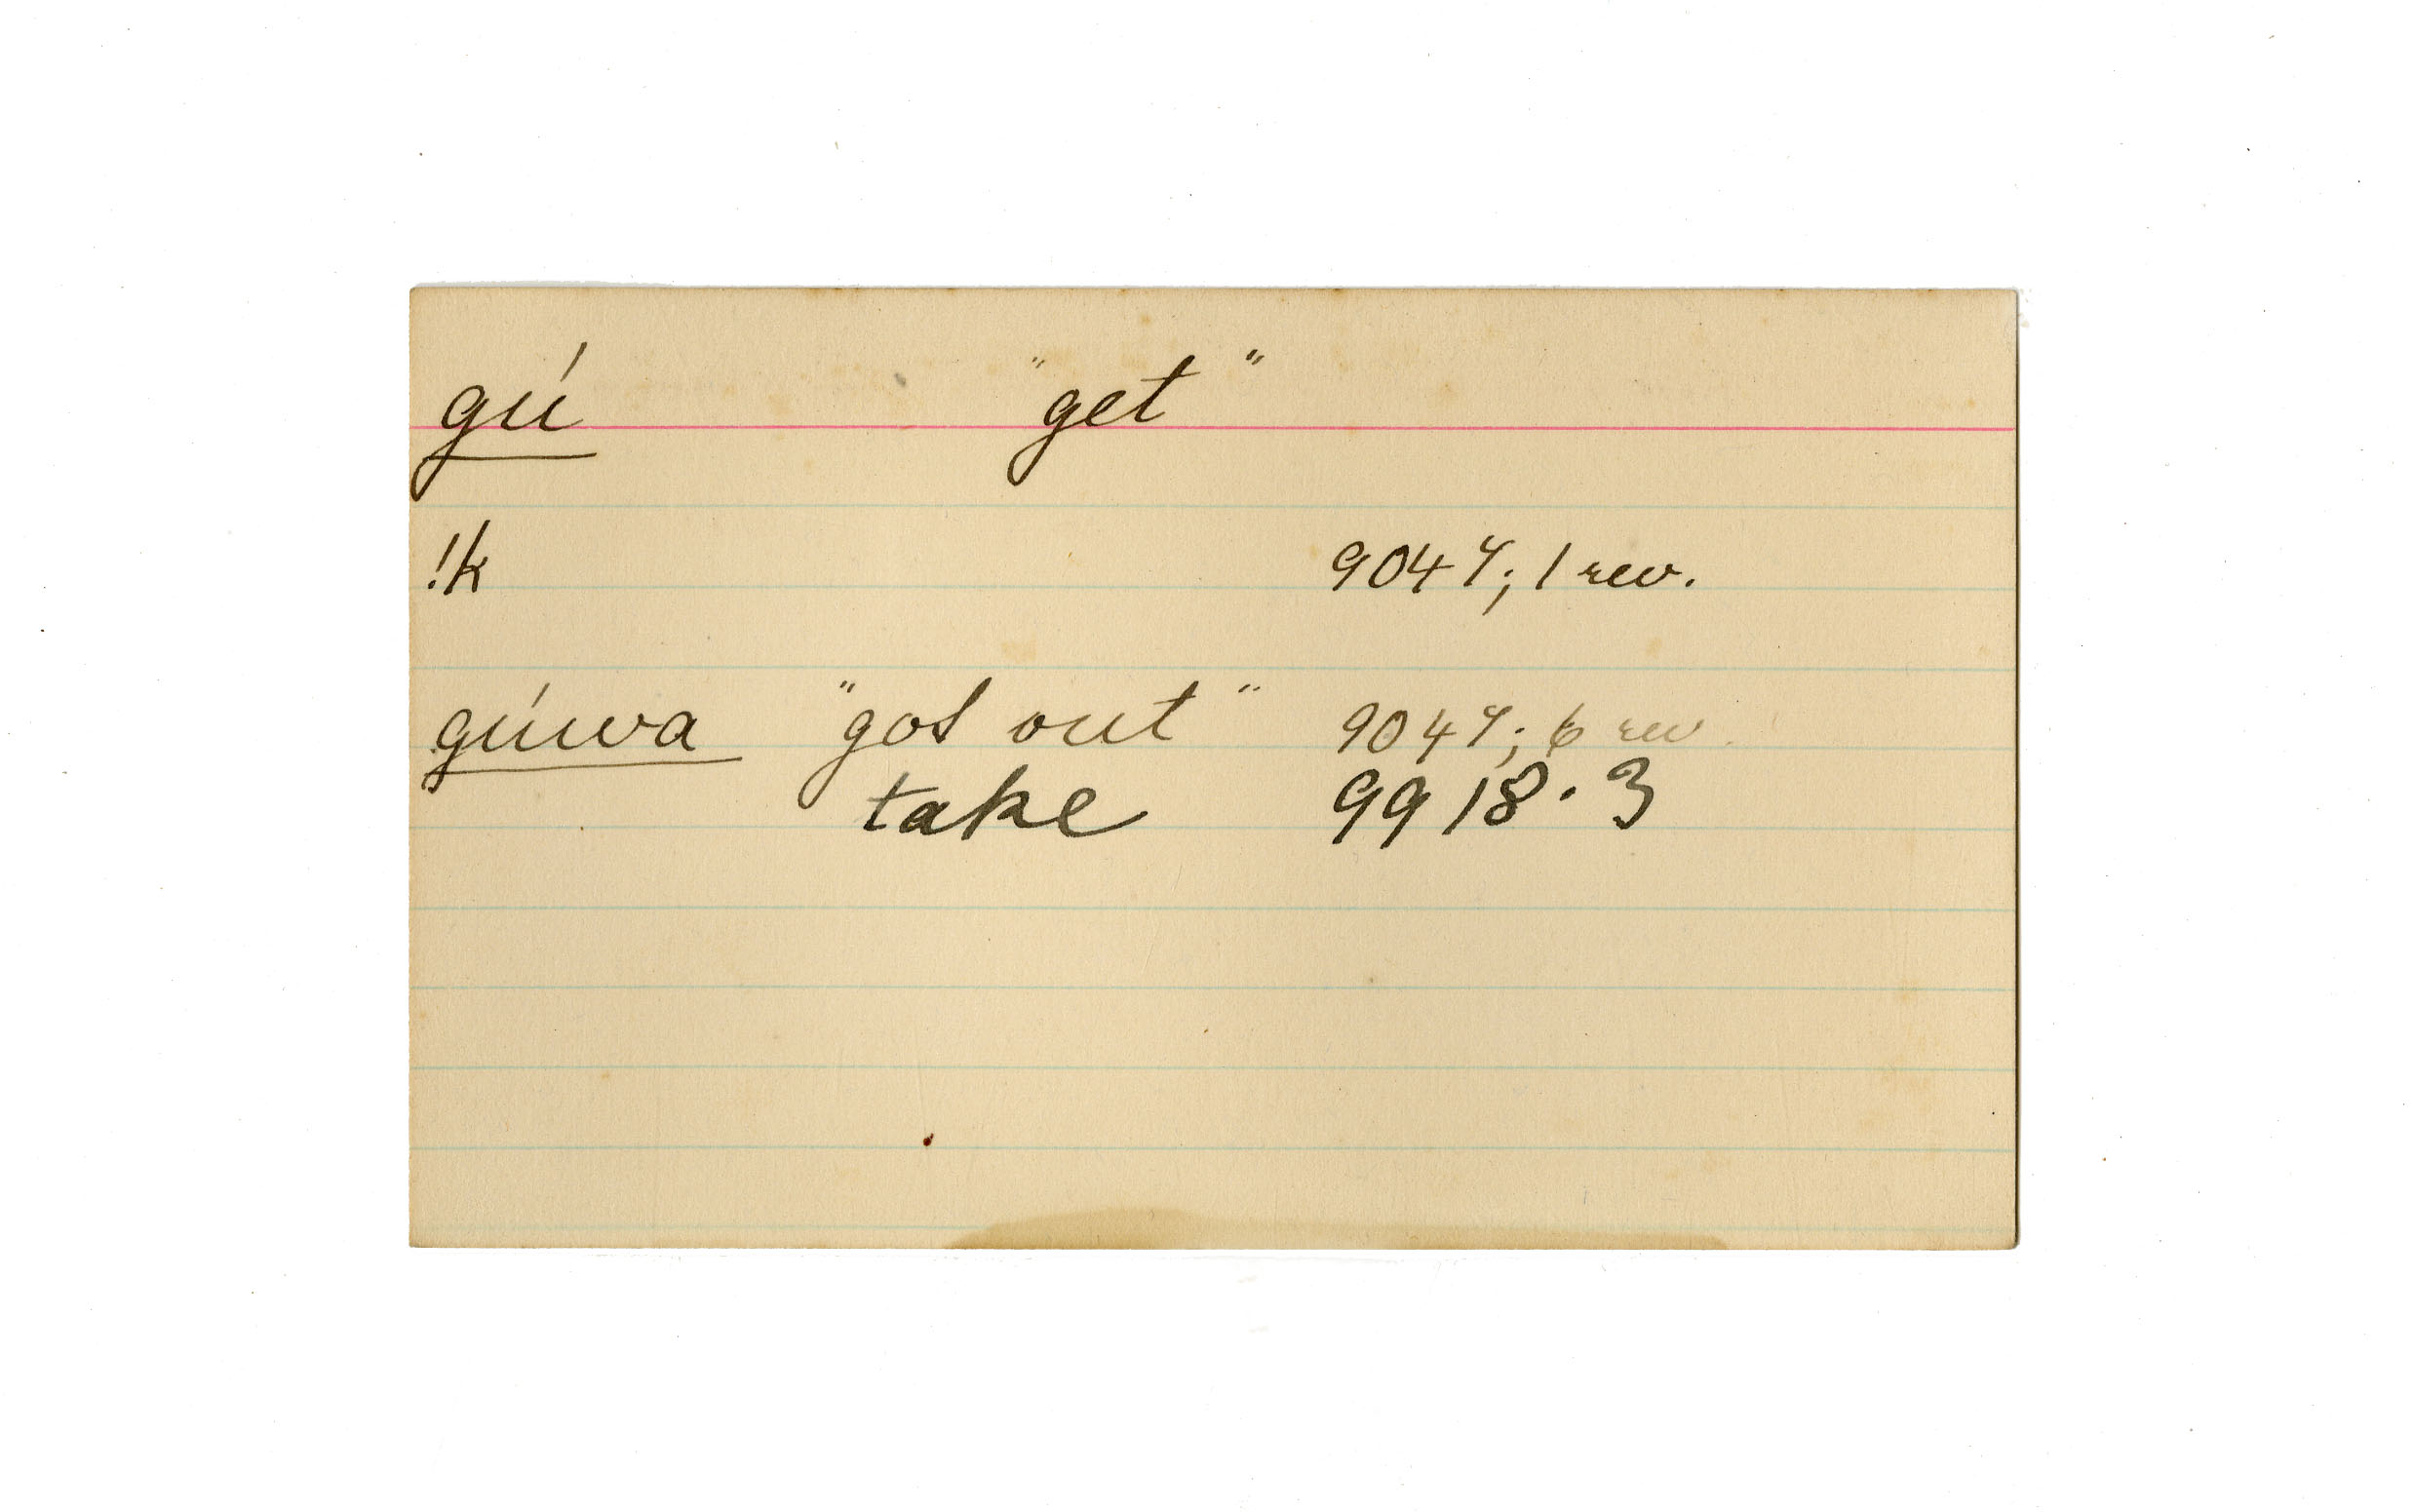 gú "get"
!k 9044; 1 rev.
gúwa "got out" 9044; 6 rev.
take 9918.3